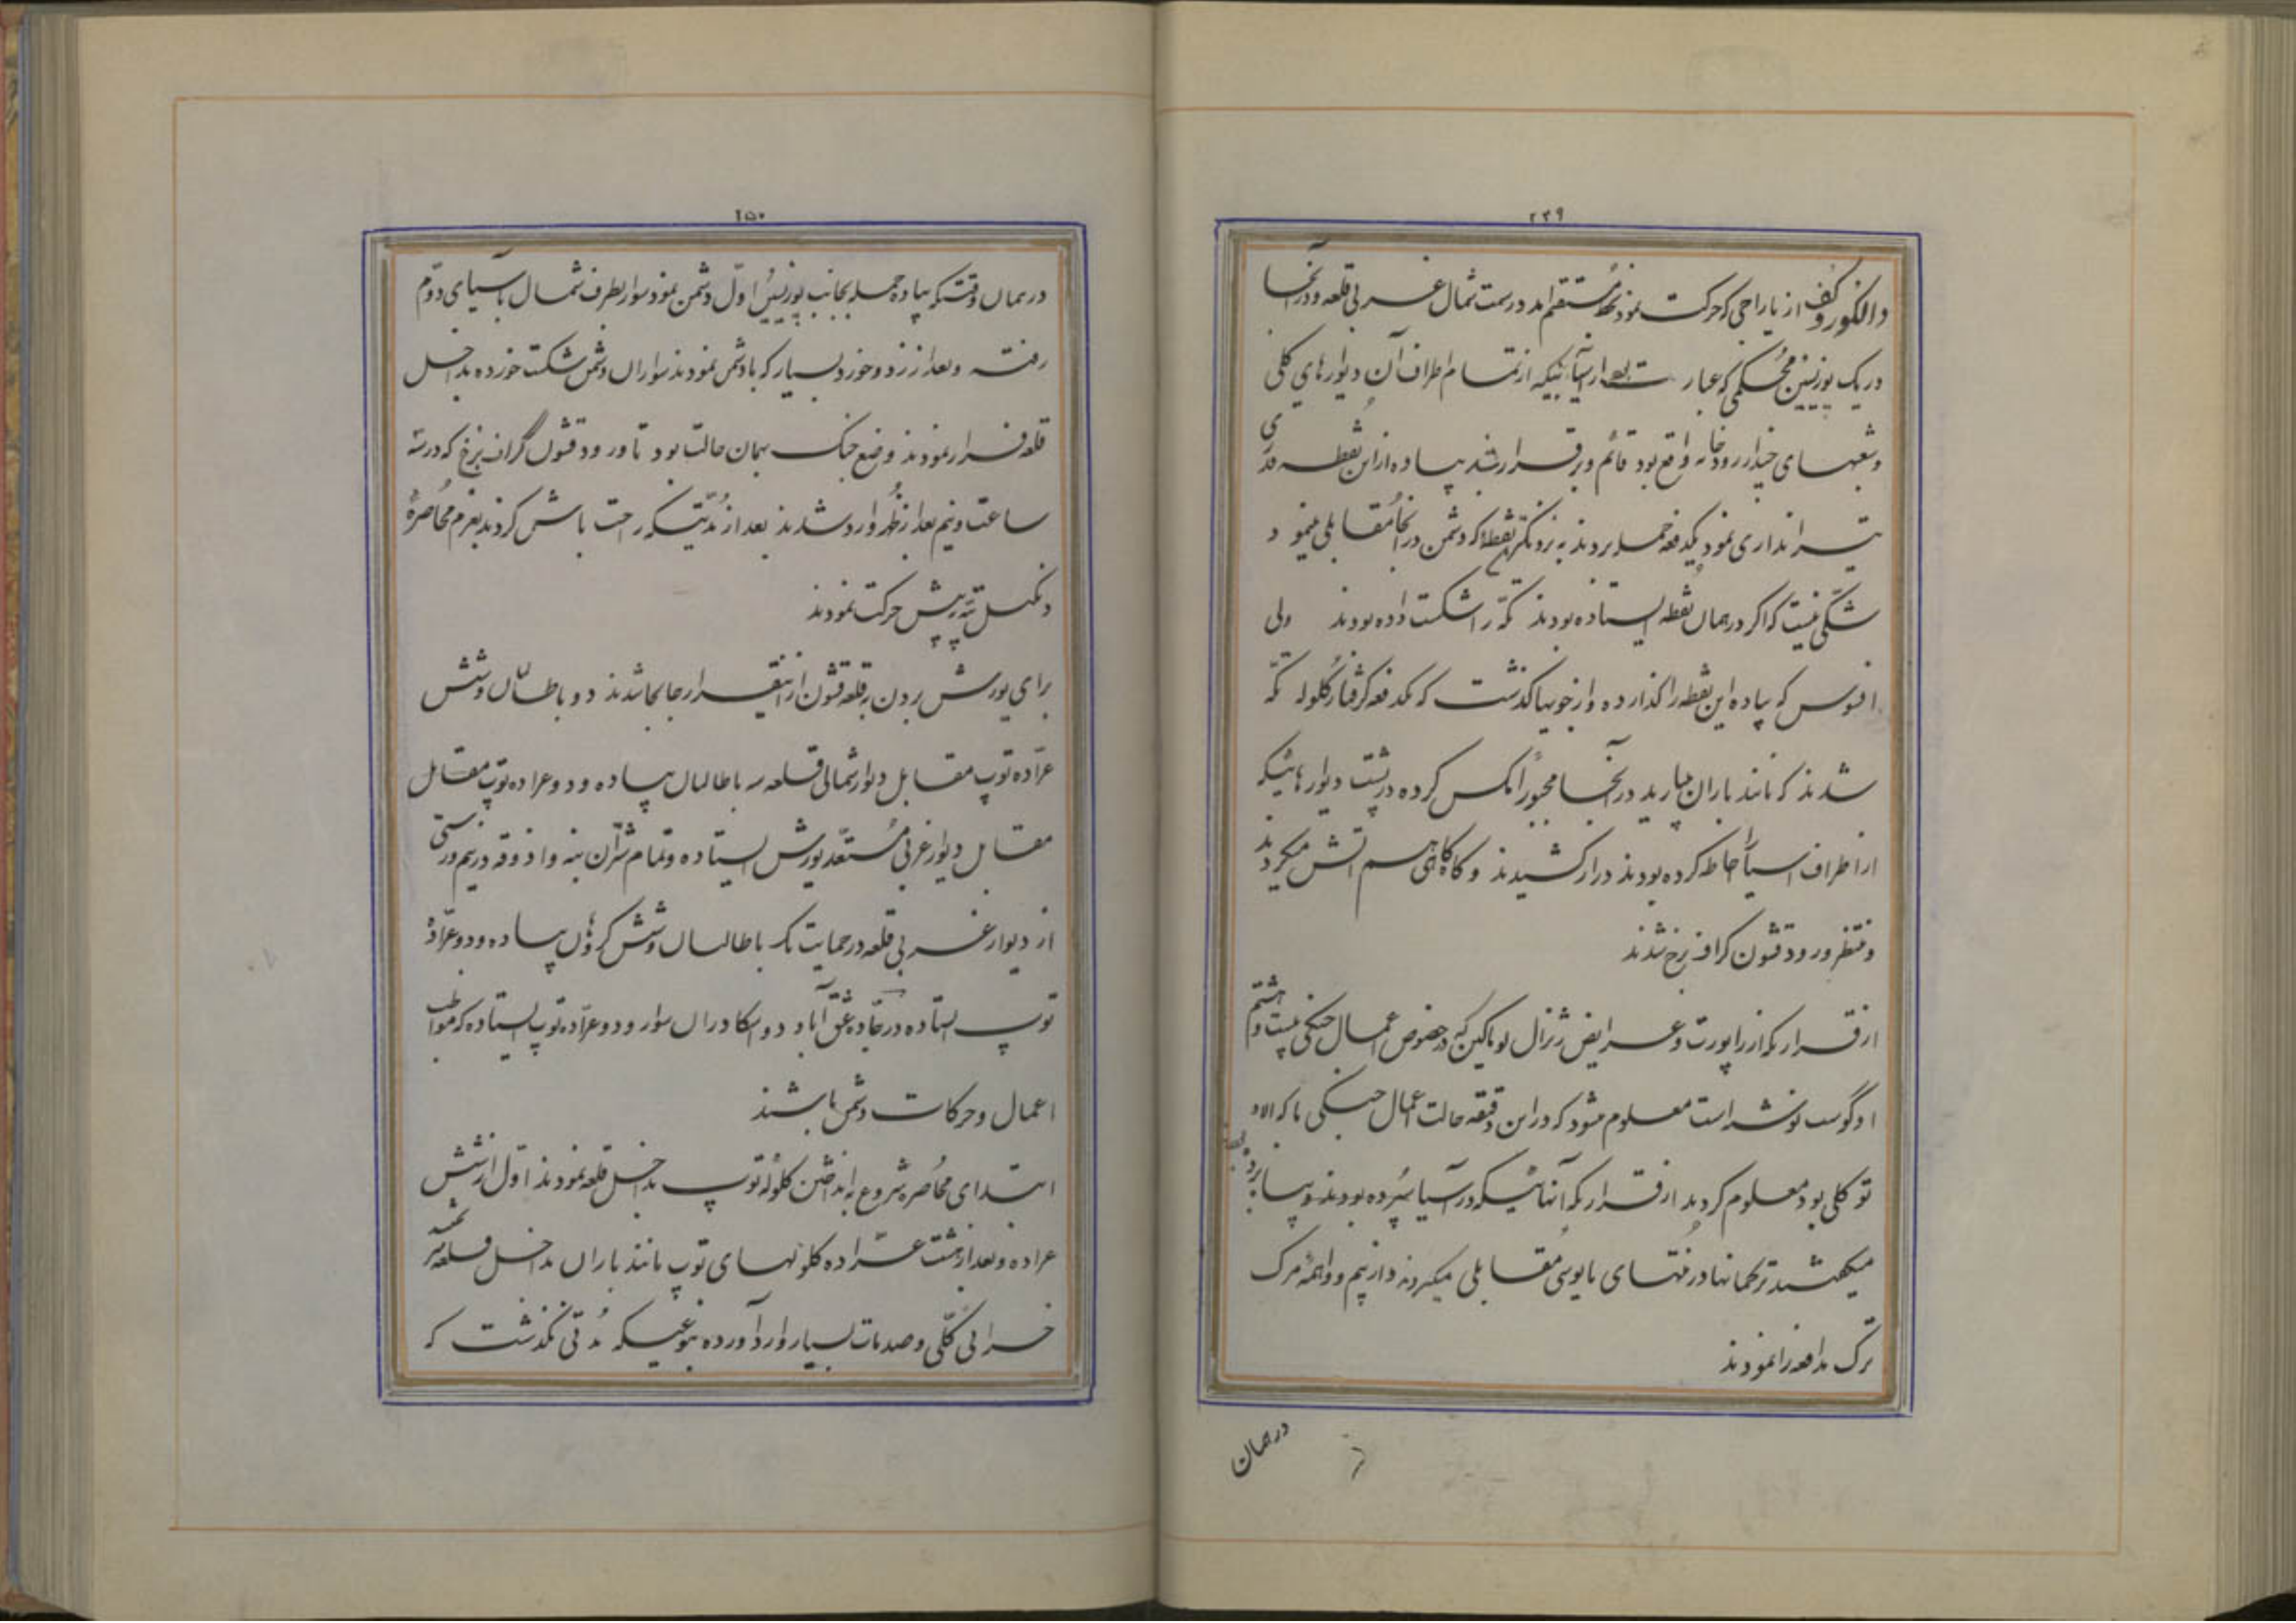 ۲۴۹
دالگوروکف از یاراجی که حرکت نمود بخط مستقیم آمد در سمت شمال غربی قلعه و در آنجا
در یک پوزیسین محکمی که عبارت بود از آسیابیکه از تمام اطراف آن دیوارهای گلی
و شعبهای چند از رودخانه واقع بود قائم و برقرار شد پیاده از این نقطه قدری
تیراندازی نمود یکدفعه حمله بردند به نزدیکترین نقطه که دشمن در آنجا مقابلی مینمود
شکّی نیست که اگر در همان نقطه ایستاده بودند تکّه را شکست داده بودند ولی
افسوس که پیاده این نقطه را گذارده و از جویها گذشت که یکدفعه گرفتار گلوله تکّه
شدند که مانند باران میبارید در آنجا مجبوراً مکس کرده در پشت دیوارهائیکه
از اطراف آسیا احاطه کرده بودند دراز کشیدند و گاگاهی هم آتش میکردند
و منتظر ورود قشون گراف برخ شدند
از قراریکه از راپورت و عرایض ژنرال لوماکین که در خصوص اعمال جنگی بیست و هشتم
اوگوست نوشته است معلوم میشود که در این دقیقه حالت اعمال جنگی ما که
تو کلی بود معلوم گردید از قراریکه آنهائیکه در آسیا سپرده بودند و پیاپی
میکشیدند ترکمانها در منتهای مایوسی مقابلی میکردند و از بیم و واهمه مرگ
ترک مدافعه را نمودند
در همان
۲۵۰
در همان وقتیکه پیاده حمله بجانب پوزیسین اول دشمن نمود سوار بطرف شمال باسیای دوّم
رفته و بعد از زد و خورد بسیار که با دشمن نمودند سواران دشمن شکست خورده بداخل
قلعه فرار نمودند وضع جنگ بهمان حالت بود تا ورود قشون گراف برخ که در سه
ساعت و نیم بعد از ظهر وارد شدند بعد از مدّتیکه راحت باش کردند بعزم محاصرهٔ
دنگل تپه پیش حرکت نمودند
برای یورش بردن به قلعه قشون از اینقرار جابجا شدند دو باطالان و شش
عرّاده توپ مقابل دیوار شمالی قلعه سه باطالیان پیاده و دو عراده توپ مقابل
مقابل دیوار غربی مستعّد یورش ایستاده و تمام شتران بنه و اذوقه در نیم ورستی
از دیوار غربی قلعه در حمایت یک باطالیان و شش گروهان پیاده و دو عرّادهٔ
توپ ایستاده در جادّه عشق آباد دو اسکادران سوار و دو عرّاده توپ ایستاده که مواظب
اعمال و حرکات دشمن باشند
ابتدای محاصره شروع به انداختن گلولهٔ توپ بداخل قلعه نمودند اوّل از شش
عراده و بعد از هشت عرّاده گلولهای توپ مانند باران بداخل قلعه
خرابی کلّی و صدمات بسیار وارد آورده بنوعیکه مدّتی نگذشت که